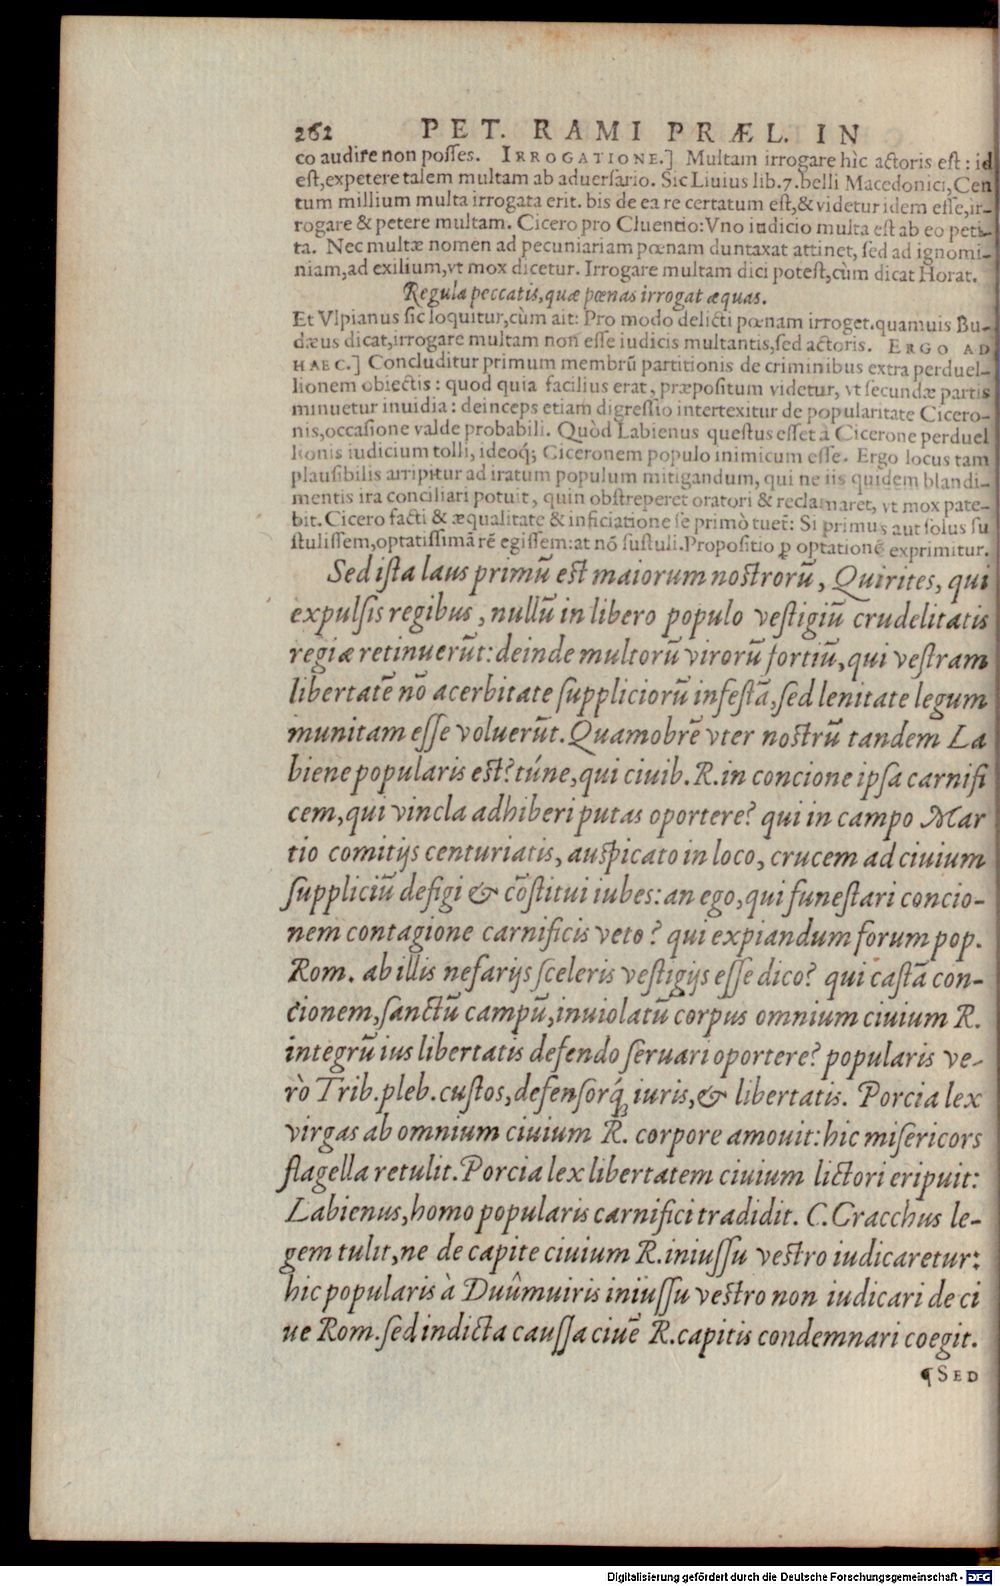 262 PET. RAMI PRÆL. IN
co audire non posses. IRROGATIONE.] Multam irrogare hîc actoris est: id
est, expetere talem multam ab aduersario. Sic Liuius lib. 7. belli Macedonici, Cen
tum millium multa irrogata erit. bis de ea re certatum est, & videtur idem esse, ir-
rogare & petere multam. Cicero pro Cluentio: Vno iudicio multa est ab eo peti-
ta. Nec multæ nomen ad pecuniariam pœnam duntaxat attinet, sed ad ignomi-
niam, ad exilium, vt mox dicetur. Irrogare multam dici potest, cùm dicat Horat.
Regula peccatis, quæ pœnas irrogat æquas.
Et Vlpianus sic loquitur, cùm ait: Pro modo delicti pœnam irroget. quamuis Bu-
dæus dicat, irrogare multam non esse iudicis multantis, sed actoris. ERGO AD
HAEC.] Concluditur primum membrū partitionis de criminibus extra perduel-
lionem obiectis: quod quia facilius erat, præpositum videtur, vt secundæ partis
minuetur inuidia: deinceps etiam digressio intertexitur de popularitate Cicero-
nis, occasione valde probabili. Quòd Labienus questus esset à Cicerone perduel
lionis iudicium tolli, ideoq; Ciceronem populo inimicum esse. Ergo locus tam
plausibilis arripitur ad iratum populum mitigandum, qui ne iis quidem blandi-
mentis ira conciliari potuit, quin obstreperet oratori & reclamaret, vt mox pate-
bit. Cicero facti & æqualitate & inficiatione se primò tuet̃: Si primus aut solus su
stulissem, optatissimā rē egissem: at nō sustuli. Propositio ꝑ optationē exprimitur.
Sed ista laus primū est maiorum nostrorū, Quirites, qui
expulsis regibus, nullū in libero populo vestigiū crudelitatis
regiæ retinuerūt: deinde multorū virorū fortiū, qui vestram
libertatē nō acerbitate suppliciorū infestā, sed lenitate legum
munitam esse voluerūt. Quamobrē vter nostrū tandem La
biene popularis est? túne, qui ciuib. R. in concione ipsa carnifi
cem, qui vincla adhiberi putas oportere? qui in campo Mar
tio comitijs centuriatis, auspicato in loco, crucem ad ciuium
suppliciū defigi & cōstitui iubes: an ego, qui funestari concio-
nem contagione carnificis veto? qui expiandum forum pop.
Rom. ab illis nefarijs sceleris vestigijs esse dico? qui castā con-
cionem, sanctū campū, inuiolatū corpus omnium ciuium R.
integrū ius libertatis defendo seruari oportere? popularis ve-
rò Trib. pleb. custos, defensorq́; iuris, & libertatis. Porcia lex
virgas ab omnium ciuium R. corpore amouit: hic misericors
flagella retulit. Porcia lex libertatem ciuium lictori eripuit:
Labienus, homo popularis carnifici tradidit. C. Gracchus le-
gem tulit, ne de capite ciuium R. iniussu vestro iudicaretur:
hic popularis à Duûmuiris iniussu vestro non iudicari de ci
ue Rom. sed indicta caussa ciuē R. capitis condemnari coegit.
¶SED
Digitalisierung gefördert durch die Deutsche Forschungsgemeinschaft - DFG